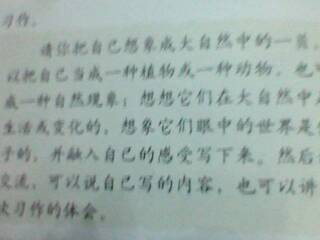 习作。
请你把自己想象成大自然中的一员。
以把自己当成一种植物或一种动物。也可
成一种自然现象;想想它们在大自然中是
生活或变化的,想象它们眼中的世界是
子的,并融入自己的感受写下来。然后
交流,可以说自己写的内容,也可以讲
次习作的体会。